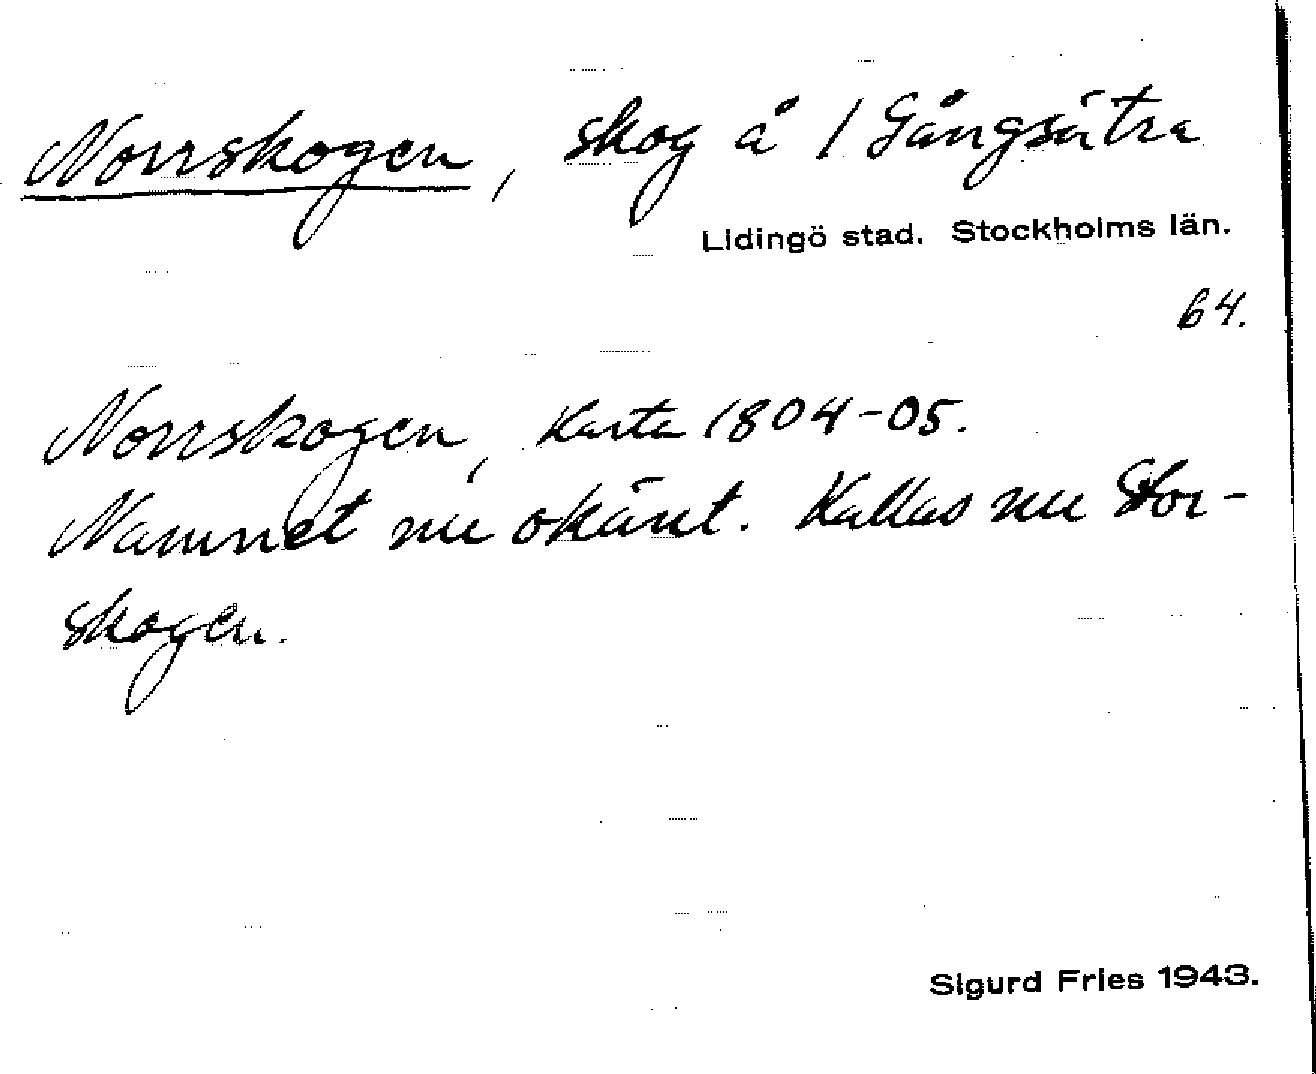 Norrskogen, skog å 1 Gångsätra
Lidingö stad. Stockholms län.
64.
Norrskogen, Karta 1804-05.
Namnet nu okänt. Kallas nu Stor-
skogen.
Sigurd Fries 1943.